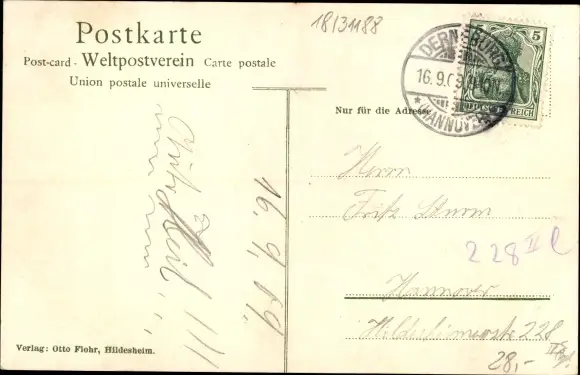 Postkarte
Post-card - Weltpostverein Carte postale
Union postale universelle
18/31188
DERNEBURG
16.9.09
* (HANNOVER) *
5
DEUTSCHES REICH
Nur für die Adresse
Herrn
Fritz Sturm
Hannover
Hildesheimerstr 228
228 II l
28,-
16.9.09.
Heil !!!
Verlag: Otto Flohr, Hildesheim.